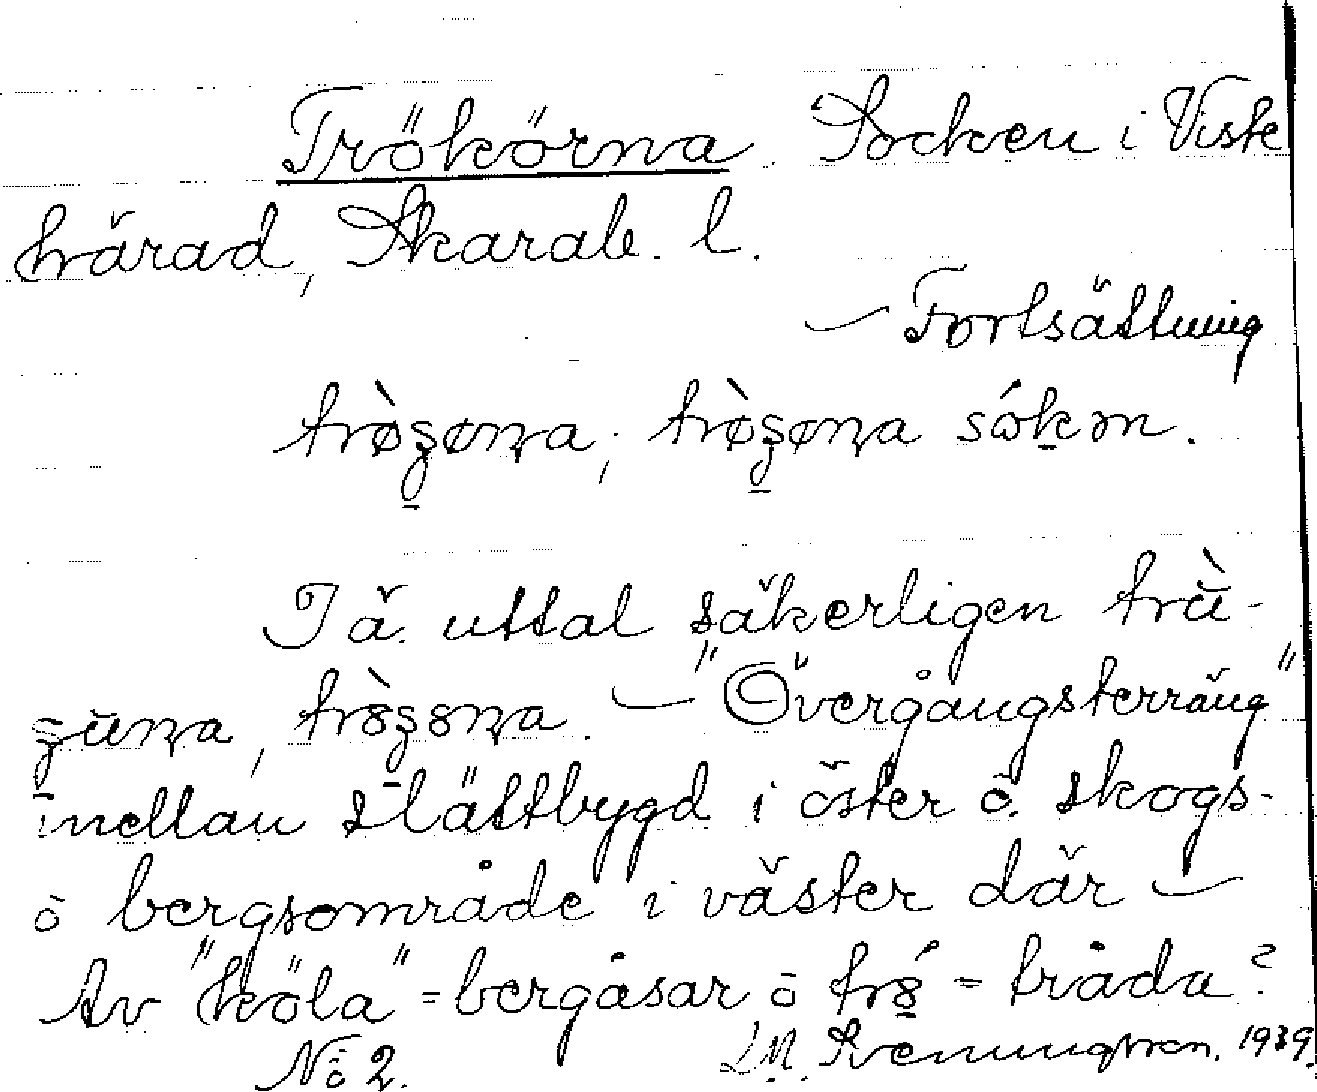 Trökörna. Socken i Viste
härad, Skarab. l.
— Fortsättning
trø̀ʒøṇa, trø̀ʒøṇa sókən.
I ä. uttal säkerligen trǜ-
ʒüṇa, trȍʒoṇa. — "Övergångsterräng"
mellan slättbygd i öster ō. skogs-
ō bergsområde i väster där —
Av "köla" = bergåsar ō tró = tråda?
No 2. D.M. Svenungsson. 1939.